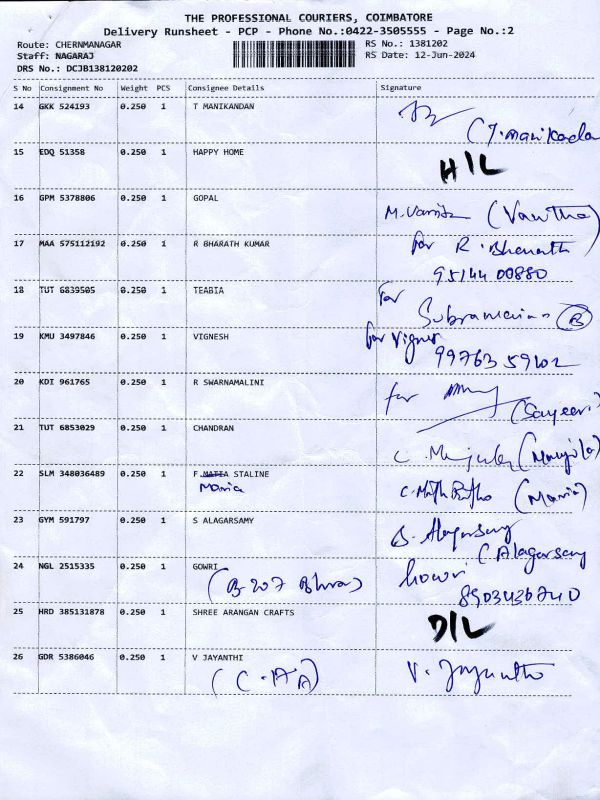 THE PROFESSIONAL COURIERS, COIMBATORE
Delivery Runsheet - PCP - Phone No.:0422-3505555 - Page No.:2
Route: CHERNMANAGAR RS No.: 1381202
Staff: NAGARAJ RS Date: 12-Jun-2024
DRS No.: DCJB138120202
S No Consignment No Weight PCS Consignee Details Signature
14 GKK 524193 0.250 1 T MANIKANDAN
(T. Manikanda
15 EDQ 51358 0.250 1 HAPPY HOME H/L
16 GPM 5378806 0.250 1 GOPAL
M. Vanitha (Vanitha)
17 MAA 575112192 0.250 1 R BHARATH KUMAR for R. Bharath
95144 00880
18 TUT 6839505 0.250 1 TEABIA For
Subramanian
19 KMU 3497846 0.250 1 VIGNESH for Vignesh
99763 59102
20 KDI 961765 0.250 1 R SWARNAMALINI for
21 TUT 6853029 0.250 1 CHANDRAN
C. (Manjula)
22 SLM 348036489 0.250 1 F MATEA STALINE
Maria (Maria)
23 GYM 591797 0.250 1 S ALAGARSAMY S. Alagarsamy
(Alagarsamy
24 NGL 2515335 0.250 1 GOWRI Gowri
(B-207 8903436740
25 HRD 385131878 0.250 1 SHREE ARANGAN CRAFTS
D/L
26 GDR 5386046 0.250 1 V JAYANTHI V. Jayanthi